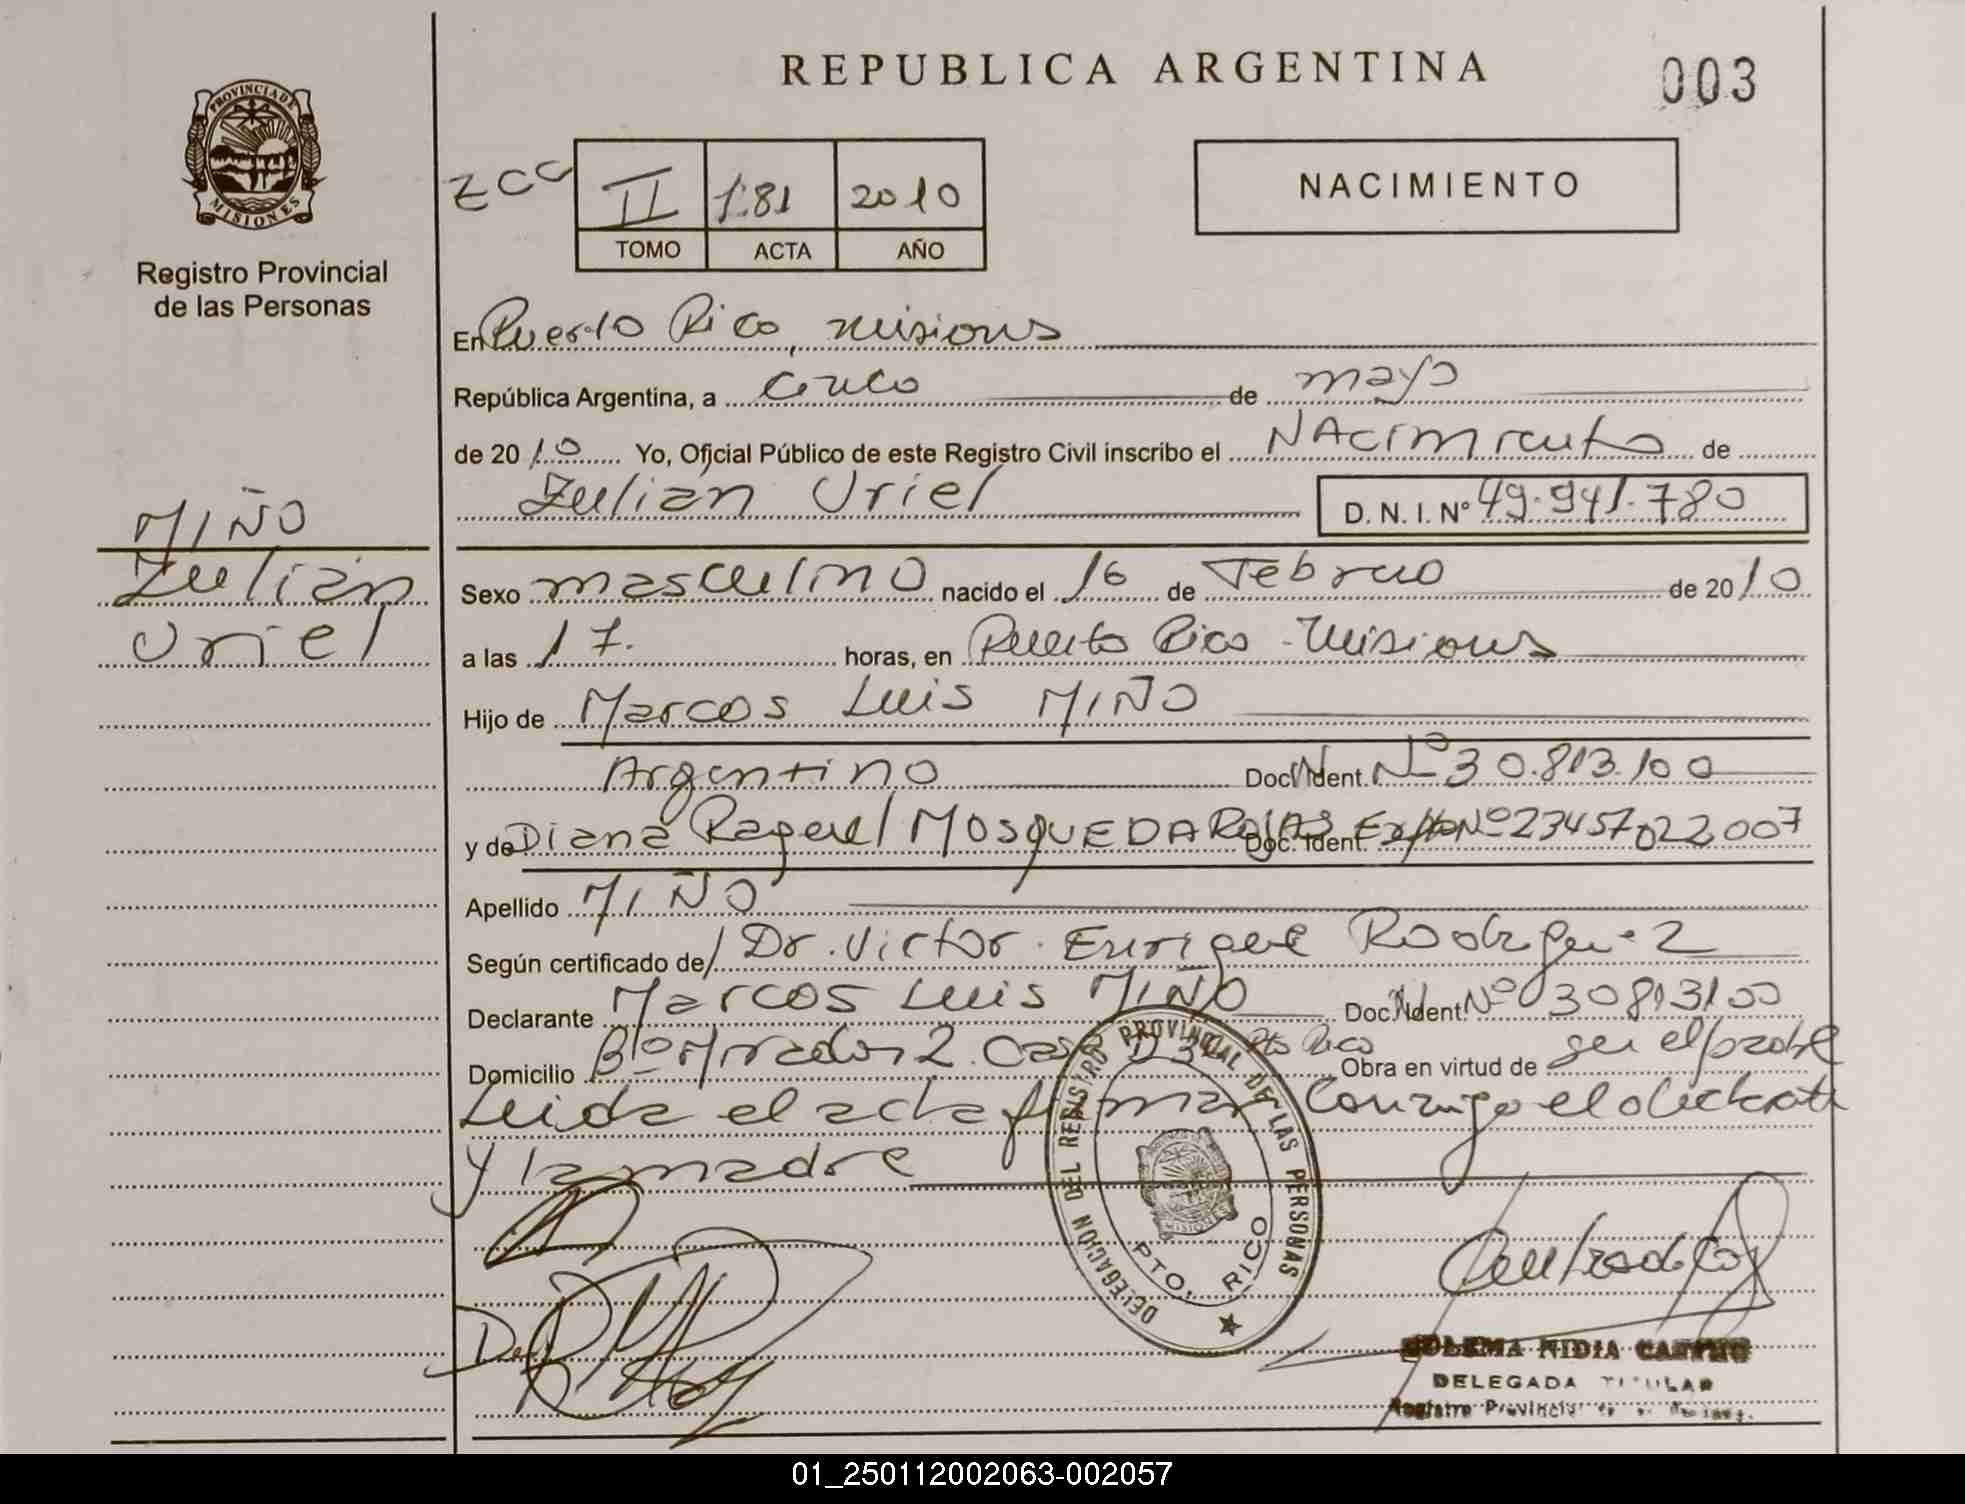 REPUBLICA ARGENTINA
003
PROVINCIA DE
MISIONES
Registro Provincial
de las Personas
ZCG
II 181 2010
TOMO ACTA AÑO
NACIMIENTO
En Puerto Rico, Misiones
República Argentina, a cinco de mayo
de 2010 Yo, Oficial Público de este Registro Civil inscribo el NAcimiento de
Zulian Uriel D. N. I. Nº 49.941.780
MIÑO
Zulian
Uriel
Sexo masculino nacido el 16 de Febrero de 2010
a las 17. horas, en Puerto Rico - Misiones
Hijo de Marcos Luis MIÑO
Argentino Doc. Ident. Nº 30.813.100
y de Diana Raquel MOSQUEDA ROJAS Doc. Ident. Nº 23457022007
Apellido MIÑO
Según certificado del Dr. Victor Enrique Rodriguez
Declarante Marcos Luis MIÑO Doc. Ident. Nº 30813100
Domicilio Bº Mirador 2. Casa Pto Rico Obra en virtud de ser el padre
Leida el acta firman conmigo el declarante
y la madre
DELEGACION DEL REGISTRO PROVINCIAL DE LAS PERSONAS
MISIONES
PTO. RICO
NIDIA
DELEGADA TITULAR
Registro Provincial
01_250112002063-002057